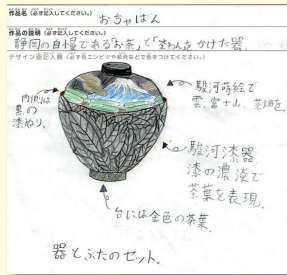 作品名（必ず記入してください。） おちゃばん
作品の説明（必ず記入してください。）
静岡の自慢である「お茶」と「茶わん」をかけた器。
デザイン画記入欄（必ず色エンピツや絵具などで色をつけてください。）
内側は
黒の
漆ぬり。
駿河蒔絵で
雲、富士山、茶畑を。
駿河漆器
漆の濃淡で
茶葉を表現。
台には金色の茶葉
器とふたのセット。